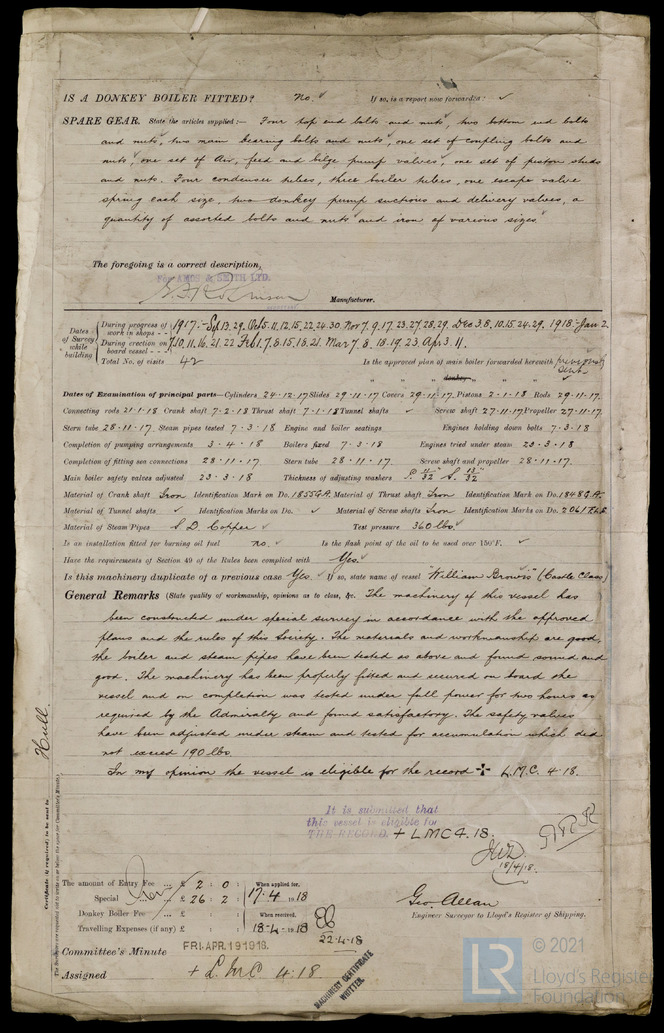 IS A DONKEY BOILER FITTED? No. ✓ If so, is a report now forwarded? ✓
SPARE GEAR. State the articles supplied:— Four top end bolts and nuts, two bottom end bolts
and nuts, two main bearing bolts and nuts, one set of coupling bolts and
nuts, one set of Air, feed and bilge pump valves, one set of piston studs
and nuts. Four condenser tubes, three boiler tubes, one escape valve
spring each size, two donkey pump suctions and delivery valves, a
quantity of assorted bolts and nuts and iron of various sizes
The foregoing is a correct description,
FOR AMOS & SMITH LTD.
Robinson Manufacturer.
Dates of Survey while building
During progress of work in shops - - 1917:- Sep. 13. 29, Oct 5. 11. 12. 15. 22. 24. 30 Nov 7. 9. 17. 23. 27. 28. 29. Dec 3. 8. 10. 15. 24. 29. 1918:- Jan 2.
During erection on board vessel - - - 7. 10. 11. 16. 21. 22 Feb 1. 7. 8. 15. 16. 21. Mar 7. 8. 18. 19. 23. Apr 3. 11.
Total No. of visits 42 Is the approved plan of main boiler forwarded herewith previously sent
" " " donkey " " "
Dates of Examination of principal parts—Cylinders 24.12.17 Slides 29.11.17 Covers 29.11.17 Pistons 2.1.18 Rods 29.11.17.
Connecting rods 21.1.18 Crank shaft 7.2.18 Thrust shaft 7.1.18 Tunnel shafts ✓ Screw shaft 27.11.17 Propeller 27.11.17
Stern tube 28.11.17 Steam pipes tested 7.3.18 Engine and boiler seatings Engines holding down bolts 7.3.18
Completion of pumping arrangements 3.4.18 Boilers fixed 7.3.18 Engines tried under steam 23.3.18
Completion of fitting sea connections 28.11.17 Stern tube 28.11.17 Screw shaft and propeller 28.11.17.
Main boiler safety valves adjusted 23.3.18 Thickness of adjusting washers P. 11/32" S. 13/32"
Material of Crank shaft Iron Identification Mark on Do. 1855 G.A. Material of Thrust shaft Iron Identification Mark on Do. 1848 G.A.
Material of Tunnel shafts ✓ Identification Marks on Do. ✓ Material of Screw shafts Iron Identification Marks on Do. 2061
Material of Steam Pipes S. D. Copper ✓ Test pressure 360 lbs. ✓
Is an installation fitted for burning oil fuel no. ✓ Is the flash point of the oil to be used over 150°F. ✓
Have the requirements of Section 49 of the Rules been complied with Yes. ✓
Is this machinery duplicate of a previous case Yes. ✓ If so, state name of vessel "William Browis" (Castle Class)
General Remarks (State quality of workmanship, opinions as to class, &c. The machinery of this vessel has
been constructed under special survey in accordance with the approved
plans and the rules of this Society. The materials and workmanship are good,
the boiler and steam pipes have been tested as above and found sound and
good. The machinery has been properly fitted and secured on board the
vessel and on completion was tested under full power for two hours as
required by the Admiralty and found satisfactory. The safety valves
have been adjusted under steam and tested for accumulation which did
not exceed 190 lbs.
In my opinion the vessel is eligible for the record ✠ L.M.C. 4.18.
It is submitted that
this vessel is eligible for
THE RECORD. + LMC 4.18.
18/4/18.
Certificate (if required) to be sent to Hull.
The amount of Entry Fee ... £ 2 : 0 : When applied for,
Special ... £ 26 : 2 : 17.4.1918
Donkey Boiler Fee ... £ : : When received,
Travelling Expenses (if any) £ : : 18.4.1918
22.4.18
Geo. Allan
Engineer Surveyor to Lloyd's Register of Shipping.
Committee's Minute FRI. APR. 19 1918.
Assigned + L.M.C. 4.18
MACHINERY CERTIFICATE
WRITTEN.
LR © 2021
Lloyd's Register
Foundation